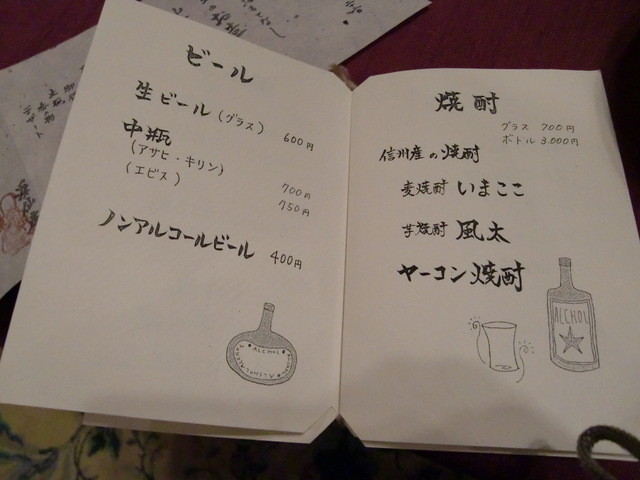 ビール
生ビール(グラス) 600円
中瓶
(アサヒ・キリン) 700円
(エビス) 750円
ノンアルコールビール 400円
ALCHOL
焼酎
グラス 700円
ボトル 3.000円
信州産の焼酎
麦焼酎 いまここ
芋焼酎 風太
ヤーコン焼酎
ALCHOL